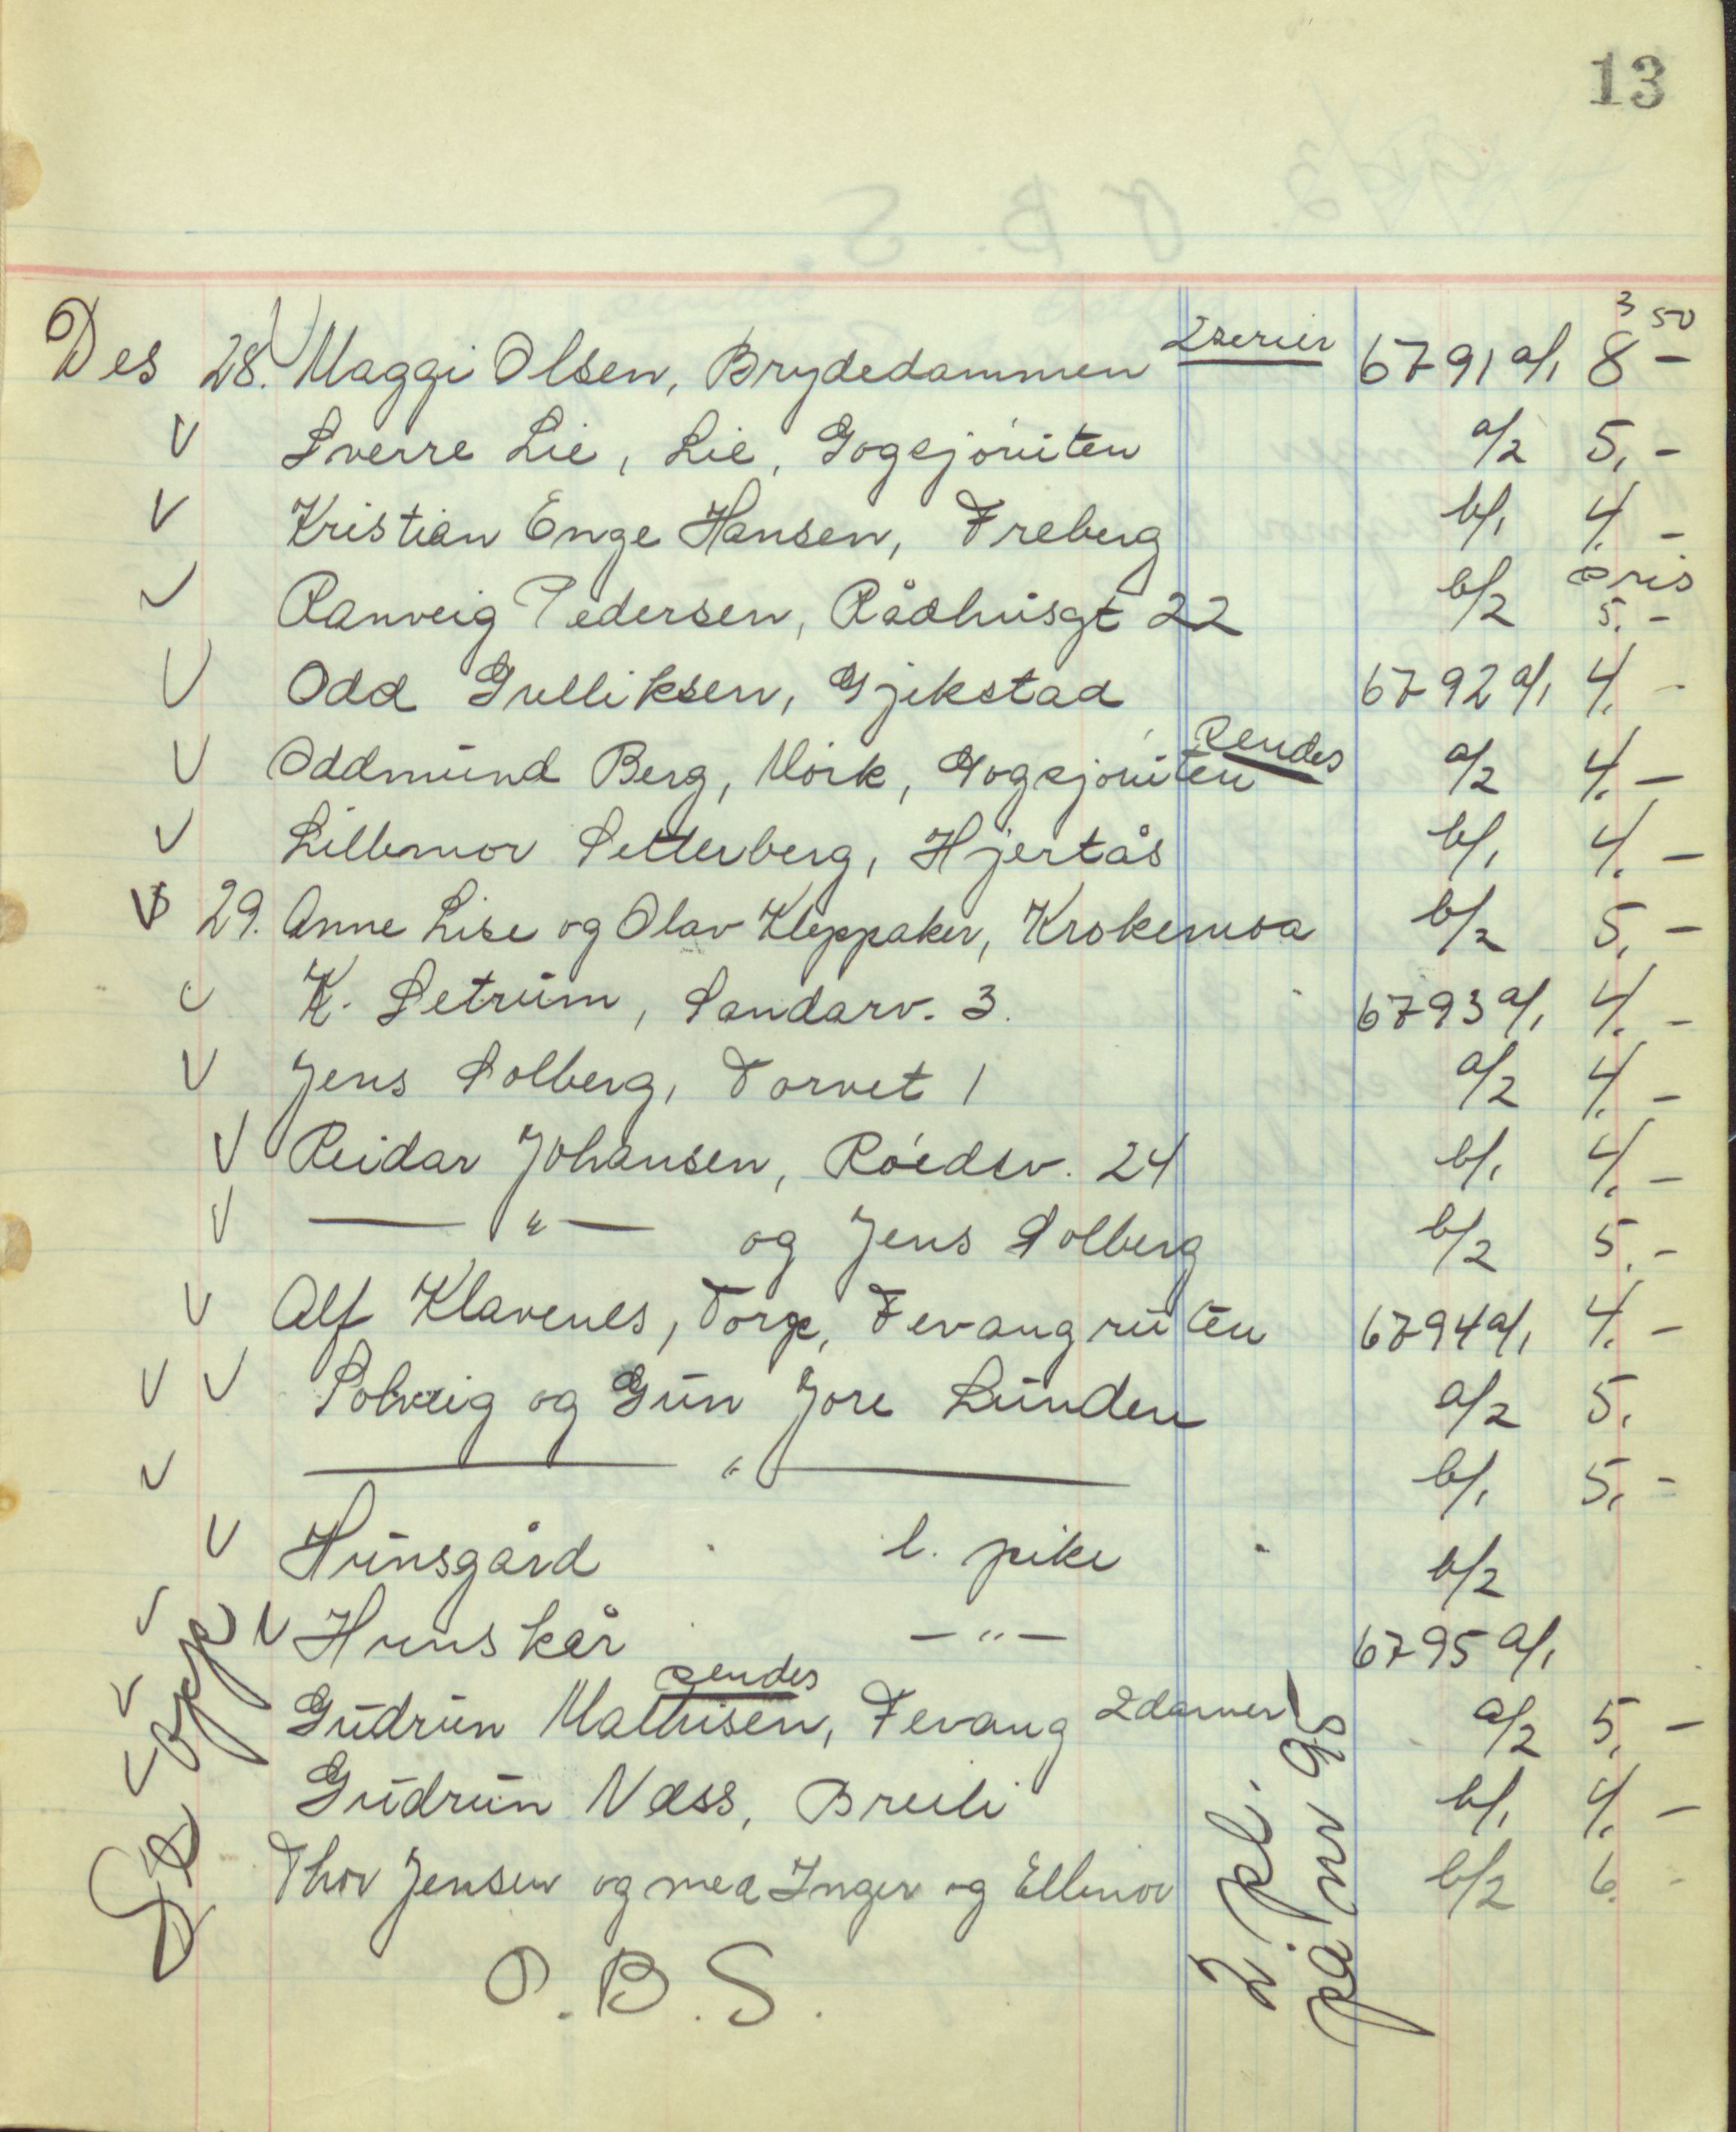 13
Des 28. V Maggi Olsen, Brydedammen 2 serier 6791 a/1 8 - 3 50
V Sverre Lie, Lie, Gogsjöruten a/2 5, -
V Kristian Enge Hansen, Freberg b/1 4. -
V Ranveig Pedersen, Rådhusgt 22 b/2 pris 5. -
V Odd Gulliksen, Gjekstad 6792 a/1 4. -
V Oddmund Berg, Mörk, Gogsjöruten sendes a/2 4. -
V Lillemor Setterberg, Hjertås b/1 4. -
V 29. Anne Lise og Olav Kleppaker, Krokemoa b/2 5, -
V K. Setrum, Sandarv. 3. 6793 a/1 4. -
V Jens Solberg, Torvet 1 a/2 4. -
V Reidar Johansen, Röedsv. 24 b/1 4. -
V — " — og Jens Solberg b/2 5. -
V Alf Klavenes, Torp, Fevangruten 6794 a/1 4. -
V V Solveig og Gun Jore Lunden a/2 5.
V — " — b/1 5, -
V Hunsgård l. pike b/2
V V Hunskår — " — 6795 a/1
V Gudrun Mathisen, Fevang sendes 2 damer a/2 5, -
V Gudrun Næss, Breili b/1 4. -
Thor Jensen og med Inger og Ellinor b/2 6. -
Se opp
2 pl.
på nr 95
O.B.S.